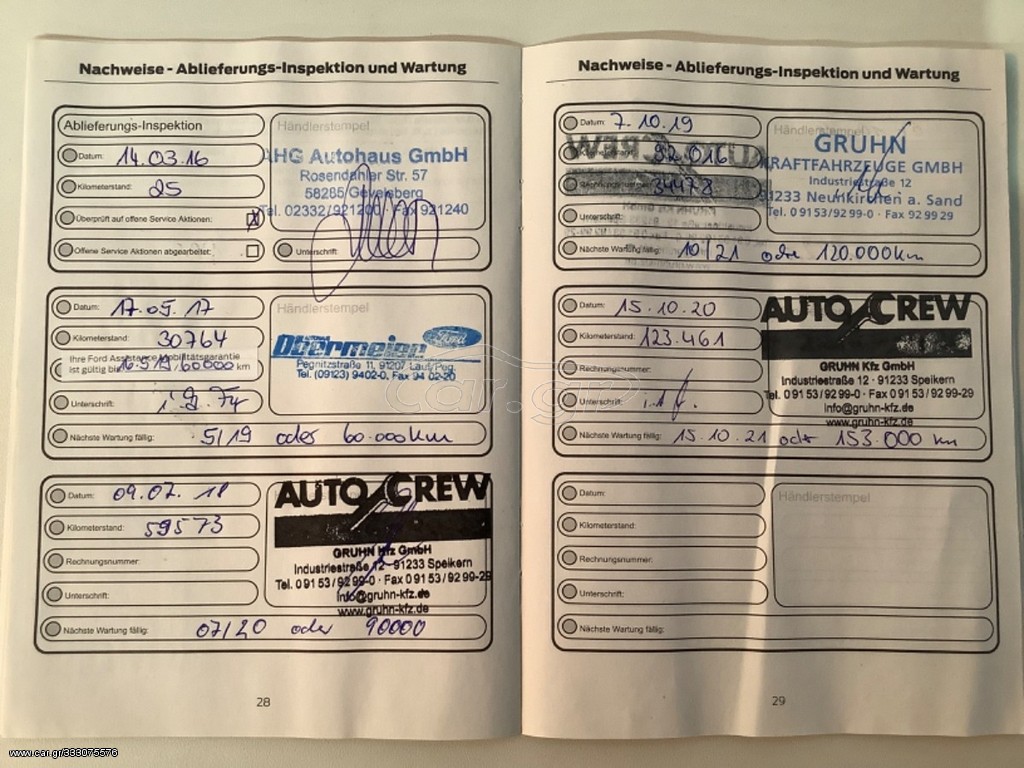 Nachweise - Ablieferungs-Inspektion und Wartung
Ablieferungs-Inspektion
Datum: 14.03.16
Kilometerstand: 25
Überprüft auf offene Service Aktionen: X
Offene Service Aktionen abgearbeitet:
Händlerstempel
AHG Autohaus GmbH
Rosendahler Str. 57
58285 Gevelsberg
Tel. 02332/921200 · Fax 921240
Unterschrift:
Datum: 17.05.17
Kilometerstand: 30764
Ihre Ford Assistance Mobilitätsgarantie
ist gültig bis 16.5.19/60000 km
Unterschrift:
Händlerstempel
Obermeier Ford
Pegnitzstraße 11, 91207 Lauf/Peg.
Tel. (09123) 9402-0, Fax 94 02-20
Nächste Wartung fällig: 5/19 oder 60.000km
Datum: 09.07.18
Kilometerstand: 59573
Rechnungsnummer:
Unterschrift:
AUTO CREW
GRUHN Kfz GmbH
Industriestraße 12 · 91233 Speikern
Tel. 0 91 53 / 92 99-0 · Fax 0 91 53 / 92 99-29
info@gruhn-kfz.de
www.gruhn-kfz.de
Nächste Wartung fällig: 07/20 oder 90000
28
Nachweise - Ablieferungs-Inspektion und Wartung
Datum: 7.10.19
92.016
34478
Unterschrift:
Händlerstempel
GRUHN
KRAFTFAHRZEUGE GMBH
Industriestraße 12
91233 Neunkirchen a. Sand
Tel. 0 91 53/92 99-0 · Fax 92 99 29
Nächste Wartung fällig: 10/21 oder 120.000km
Datum: 15.10.20
Kilometerstand: 123.461
Rechnungsnummer:
Unterschrift:
AUTO CREW
GRUHN Kfz GmbH
Industriestraße 12 · 91233 Speikern
Tel. 0 91 53 / 92 99-0 · Fax 0 91 53 / 92 99-29
info@gruhn-kfz.de
www.gruhn-kfz.de
Nächste Wartung fällig: 15.10.21 oder 153.000 km
Datum:
Kilometerstand:
Rechnungsnummer:
Unterschrift:
Händlerstempel
Nächste Wartung fällig:
29
car.gr
www.car.gr/333075576